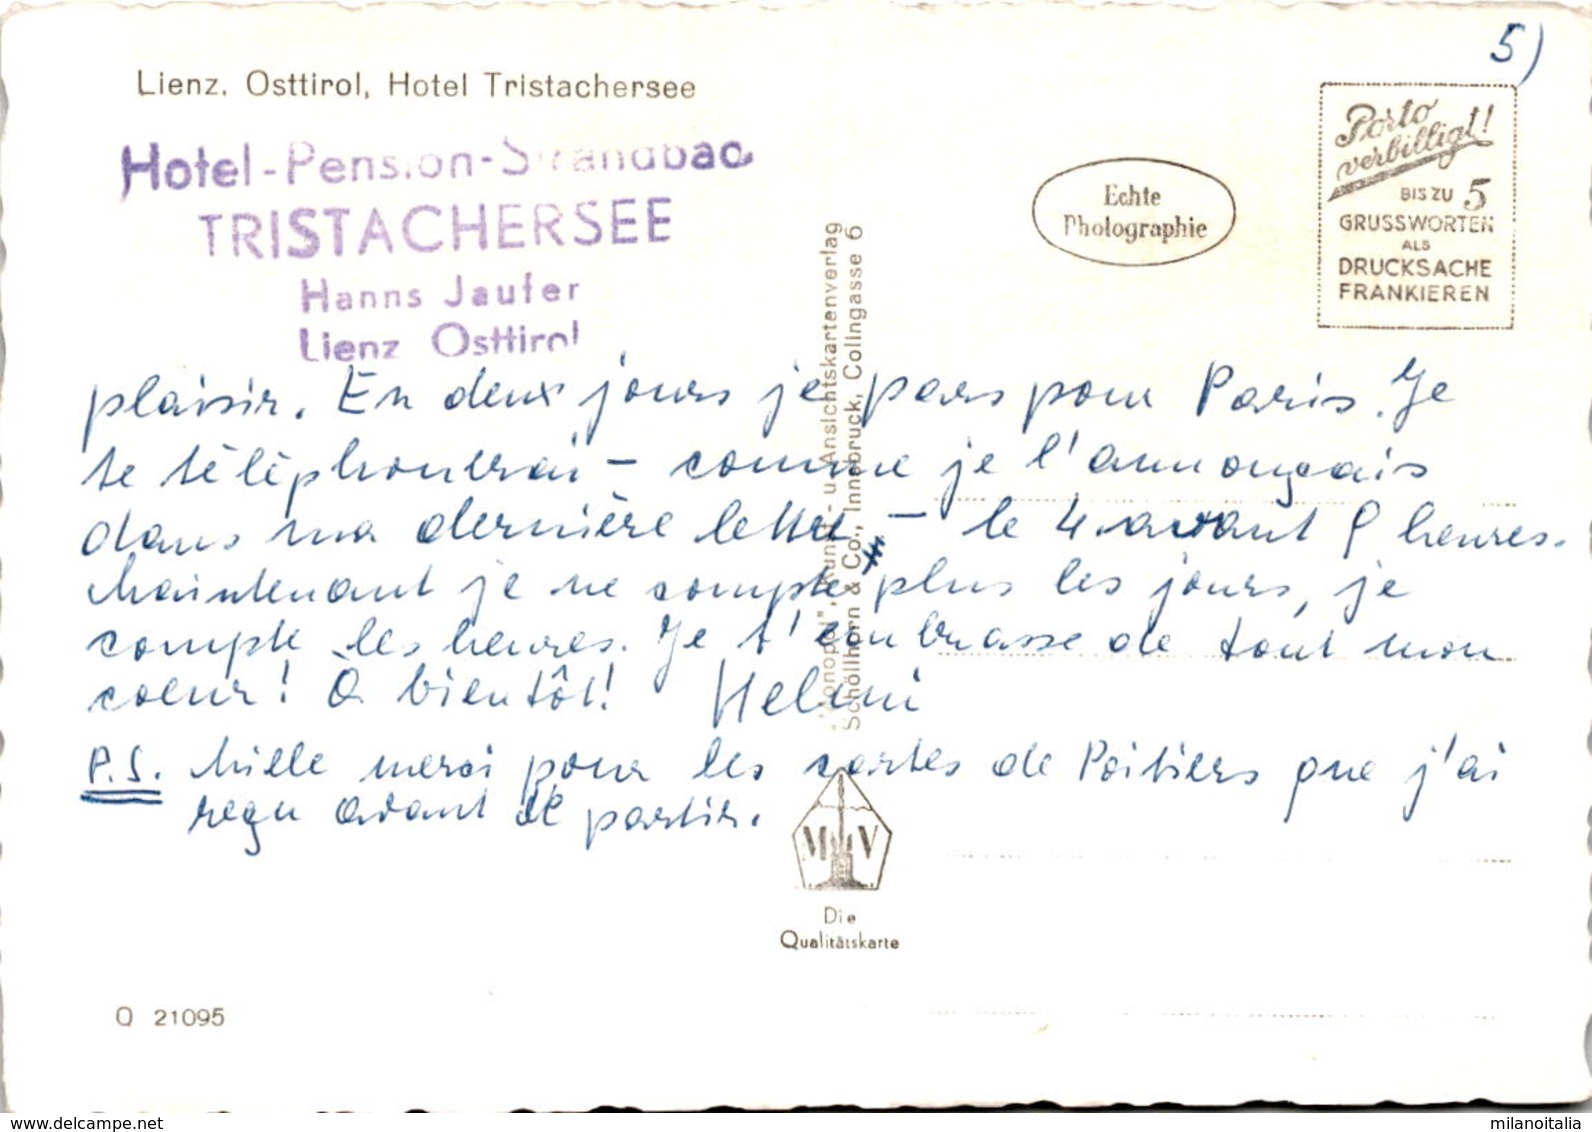 5)
Lienz, Osttirol, Hotel Tristachersee
Porto
verbilligt!
BIS ZU 5
GRUSSWORTEN
ALS
DRUCKSACHE
FRANKIEREN
Hotel-Pension-Strandbad
TRISTACHERSEE
Hanns Jaufer
Lienz Osttirol
Echte
Photographie
"Monopol", Kunst- u. Ansichtskartenverlag
Schöllhorn & Co., Innsbruck, Colingasse 6
plaisir. En deux jours je pars pour Paris. Je
te téléphonerai – comme je l'annonçais
dans ma dernière lettre – le 4 avant 9 heures.
Maintenant je ne compte plus les jours, je
compte les heures. Je t'embrasse de tout mon
coeur! À bientôt! Heleni
P.S. Mille merci pour les cartes de Poitiers que j'ai
reçu avant de partir.
M V
Die
Qualitätskarte
Q 21095
www.delcampe.net
milanoitalia